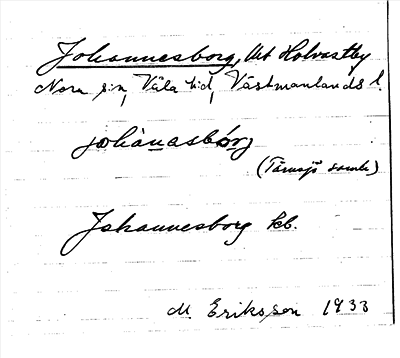 Johannesborg, Ut Holvastby
Nora sn, Våla hd, Västmanlands l.
johànasbórj
(Tärnsjö saml.)
Johannesborg kb.
M. Eriksson 1933